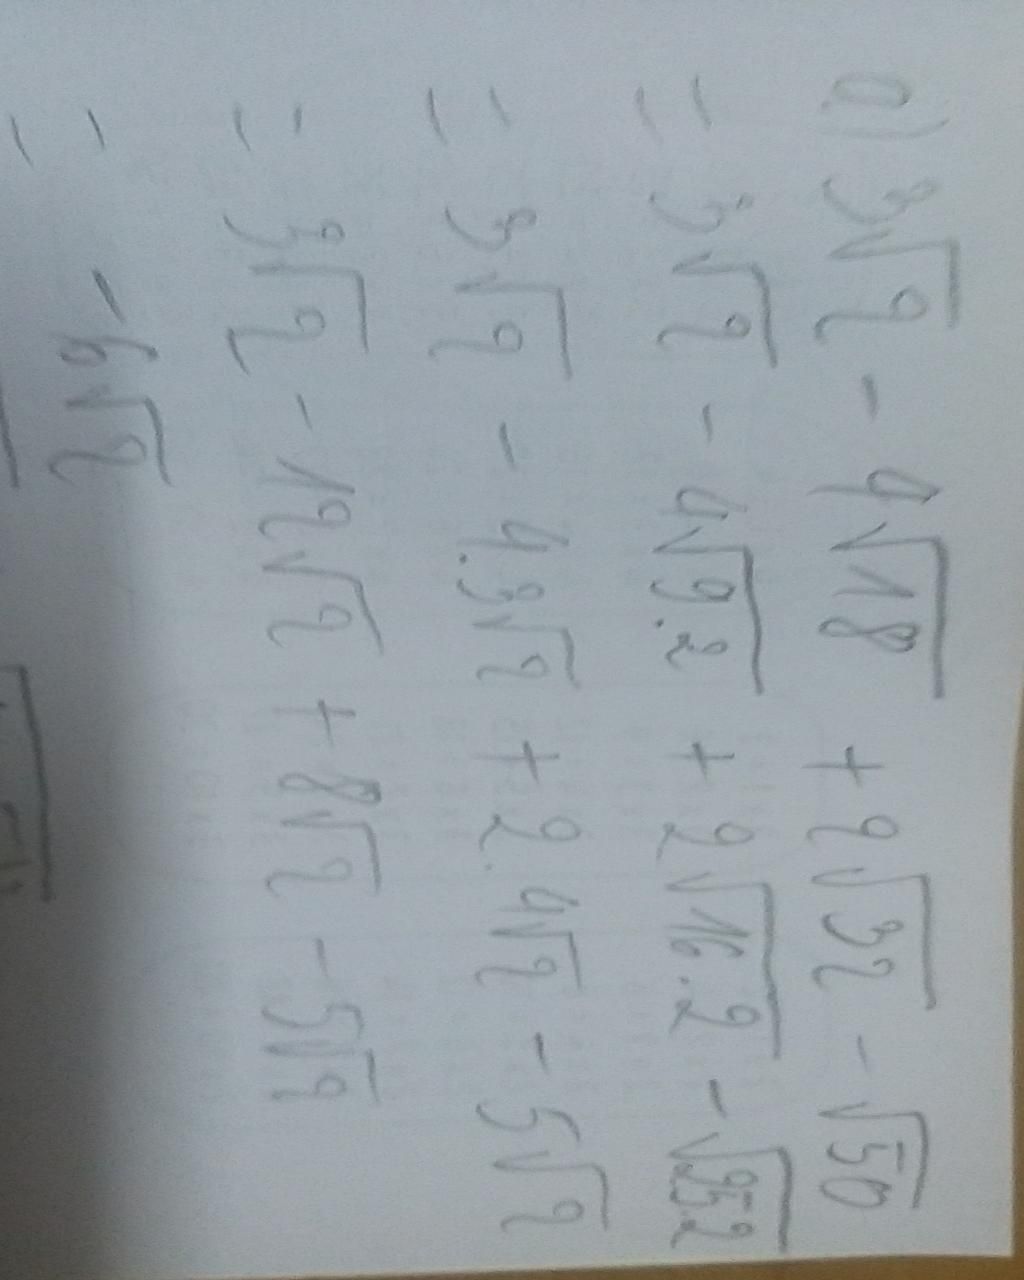 a) 3√2 - 4√18 + 2√32 - √50
= 3√2 - 4√9.2 + 2√16.2 - √25.2
= 3√2 - 4.3√2 + 2.4√2 - 5√2
= 3√2 - 12√2 + 8√2 - 5√2
= -6√2